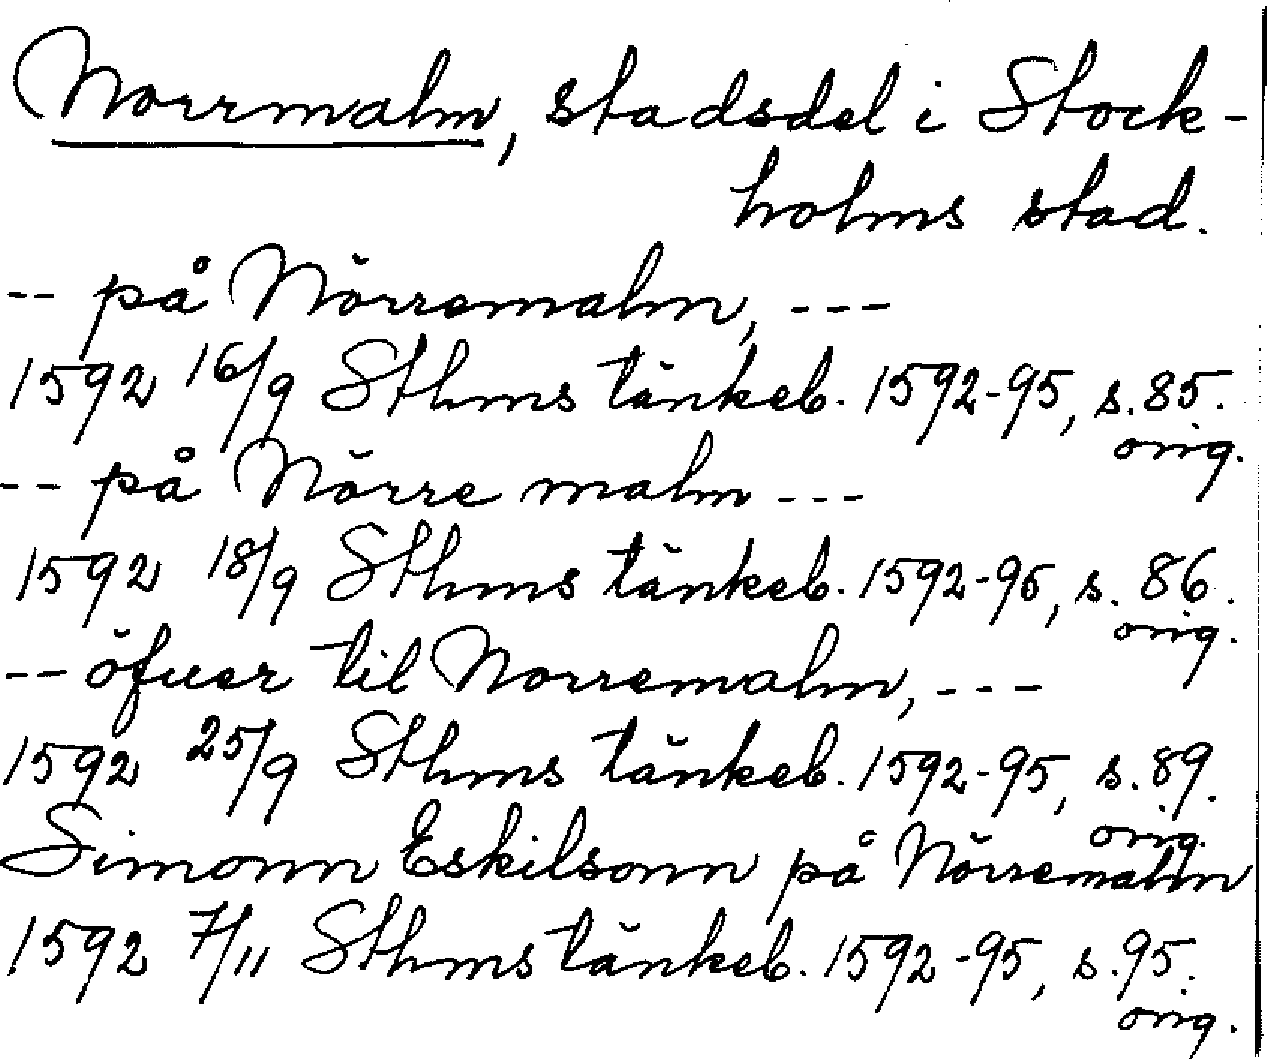 Norrmalm, stadsdel i Stock-
holms stad.
-- på Nörremalm, ---
1592 16/9 Sthms tänkeb. 1592-95, s. 85.
orig.
-- på Nörre malm ---
1592 18/9 Sthms tänkeb. 1592-95, s. 86.
orig.
-- öfuer til Norremalm, ---
1592 25/9 Sthms tänkeb. 1592-95, s. 89.
orig.
Simonn Eskilsonn på Nörremalm
1592 7/11 Sthms tänkeb. 1592-95, s. 95.
orig.